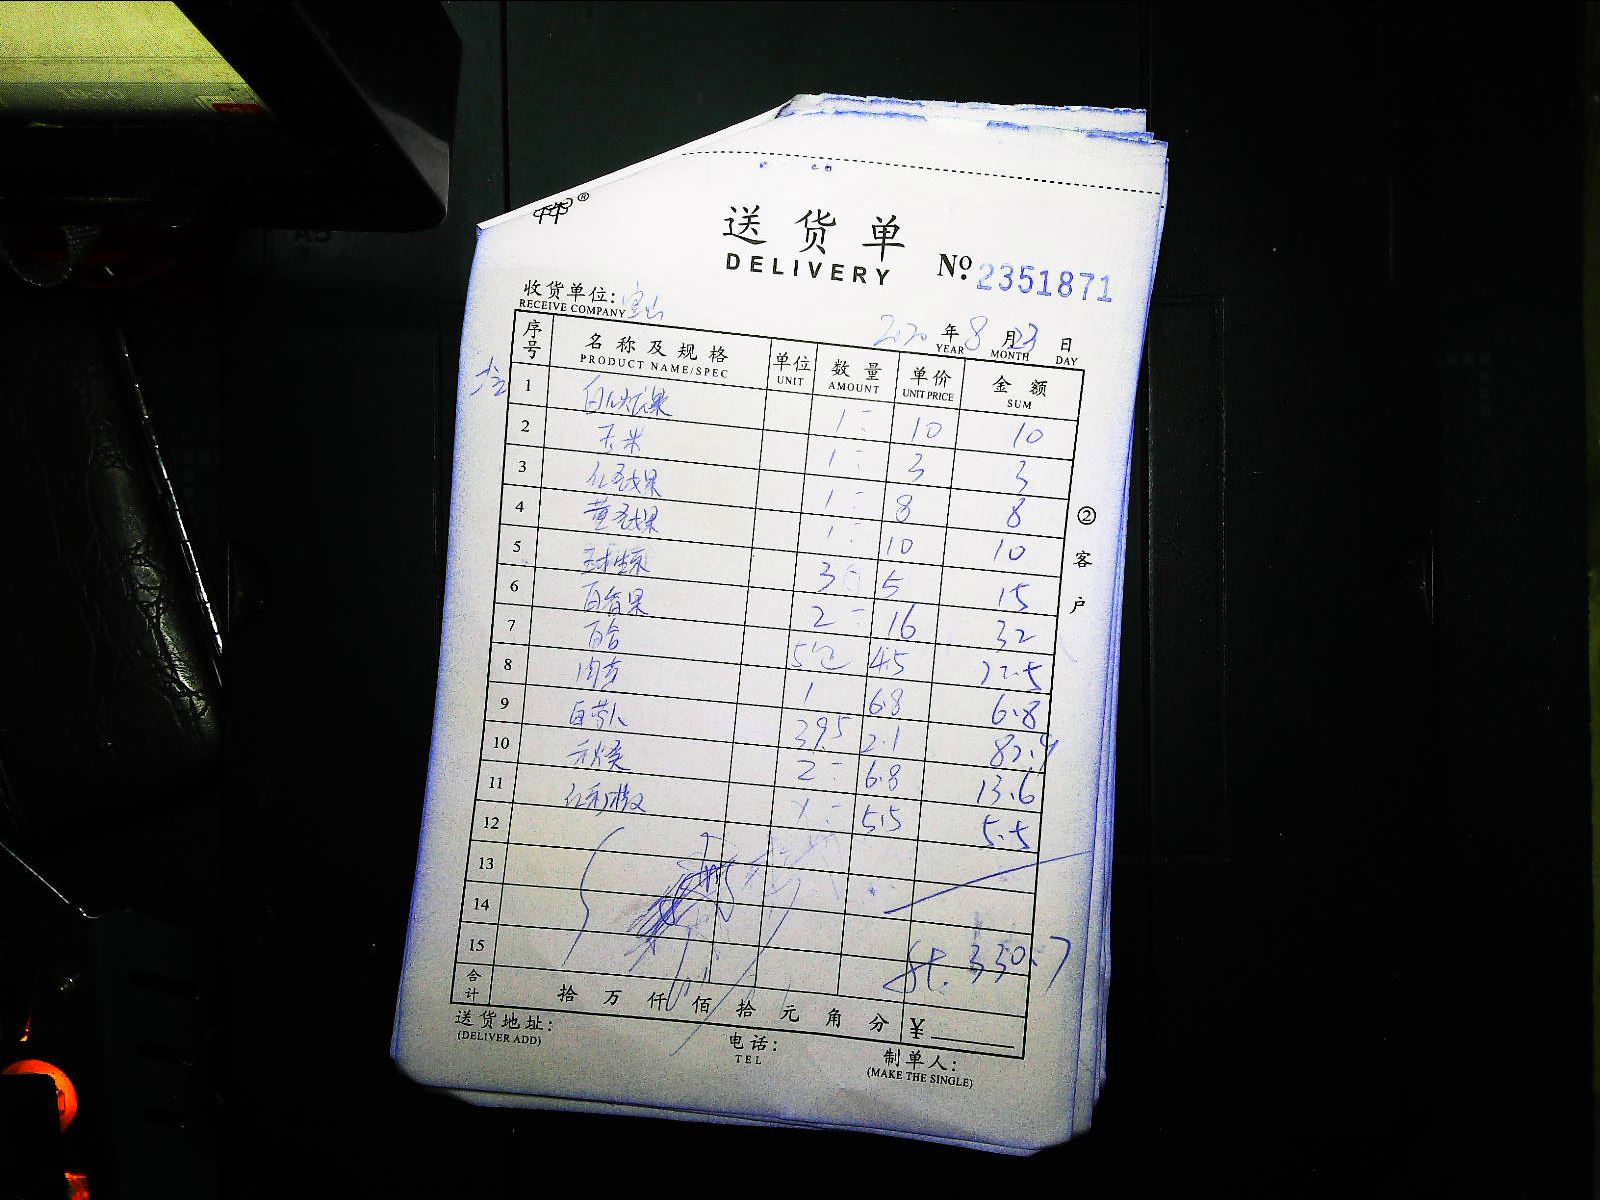 送货单
DELIVERY
№ 2351871
收货单位: 宝山
RECEIVE COMPANY
2020 年 8 月 23 日
YEAR MONTH DAY
序号 名称及规格 单位 数量 单价 金额
PRODUCT NAME/SPEC UNIT AMOUNT UNIT PRICE SUM
1 白火龙果 1 10 10
2 玉米 1 3 3
3 8 8
4 1 10 10
5 3 5 15
6 百香果 2 16 32
7 百合 5包 4.5 22.5
8 1 6.8 6.8
9 39.5 2.1 82.9
10 2 6.8 13.6
11 5.5 5.5
12
13
14
15 350.7
合计 拾 万 仟 佰 拾 元 角 分 ¥
送货地址:
(DELIVER ADD)
电话:
TEL
制单人:
(MAKE THE SINGLE)
②客户